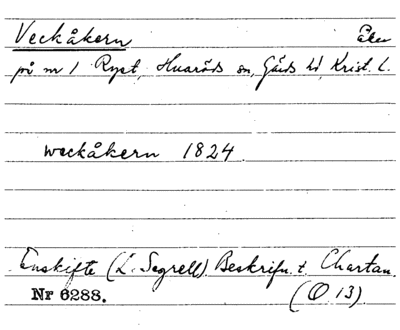 Veckåkern Åker
på nr 1 Ryet, Huaröds sn, Gärds hd, Krist. l.
weckåkern 1824.
Enskifte (L. Segrell) Beskrifn. t. Chartan.
Nr 6288. (O 13)